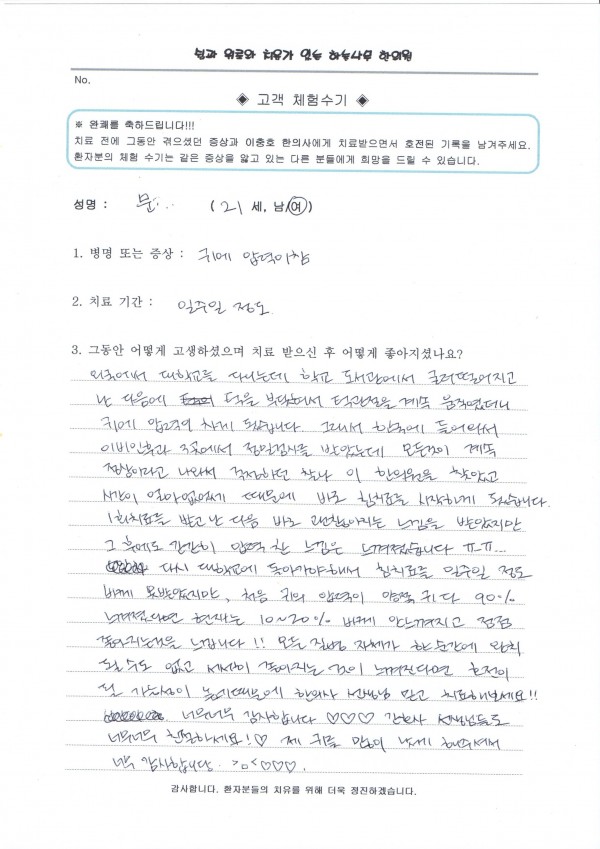 No.
◈ 고객 체험수기 ◈
※ 완쾌를 축하드립니다!!!
치료 전에 그동안 겪으셨던 증상과 이충호 한의사에게 치료받으면서 호전된 기록을 남겨주세요.
환자분의 체험 수기는 같은 증상을 앓고 있는 다른 분들에게 희망을 드릴 수 있습니다.
성명 : 문... ( 21 세, 남/여)
1. 병명 또는 증상 : 귀에 압력이참
2. 치료 기간 : 일주일 정도
3. 그동안 어떻게 고생하셨으며 치료 받으신 후 어떻게 좋아지셨나요?
외국에서 대학교를 다니는데 학교 도서관에서 굴러떨어지고
난 다음에 턱을 턱관절을 계속 움직였더니
귀에 압력이 차게 됐습니다. 그래서 한국에 들어와서
이비인후과 3곳에서 정밀검사를 받았는데 모든것이 계속
정상이라고 나와서 걱정하던 찰나 이 한의원을 찾았고
시간이 얼마없었기 때문에 바로 침치료를 시작하게 됐습니다.
1회치료를 받고 난 다음 바로 괜찮아지는 느낌을 받았지만
그 후에도 간간히 압력 찬 느낌은 느껴졌습니다 ㅠㅠ...
다시 대학교에 돌아가야해서 침치료를 일주일 정도
바께 못받았지만, 처음 귀의 압력이 양쪽 귀 다 90%
느껴졌다면 현재는 10~20% 바께 안느껴지고 점점
좋아지는것을 느낍니다!! 모든 질병 자체가 한순간에 완치
될 수도 없고 서서히 좋아지는 것이 느껴진다면 호전이
될 가능성이 높기때문에 한의사 선생님 믿고 치료해보세요!!
너무너무 감사합니다 ♡♡♡ 간호사 선생님들도
너무너무 친절하세요!♡ 제 귀를 많이 낫게 해주셔서
너무 감사합니다. >_o<♡♡♡.
감사합니다. 환자분들의 치유를 위해 더욱 정진하겠습니다.